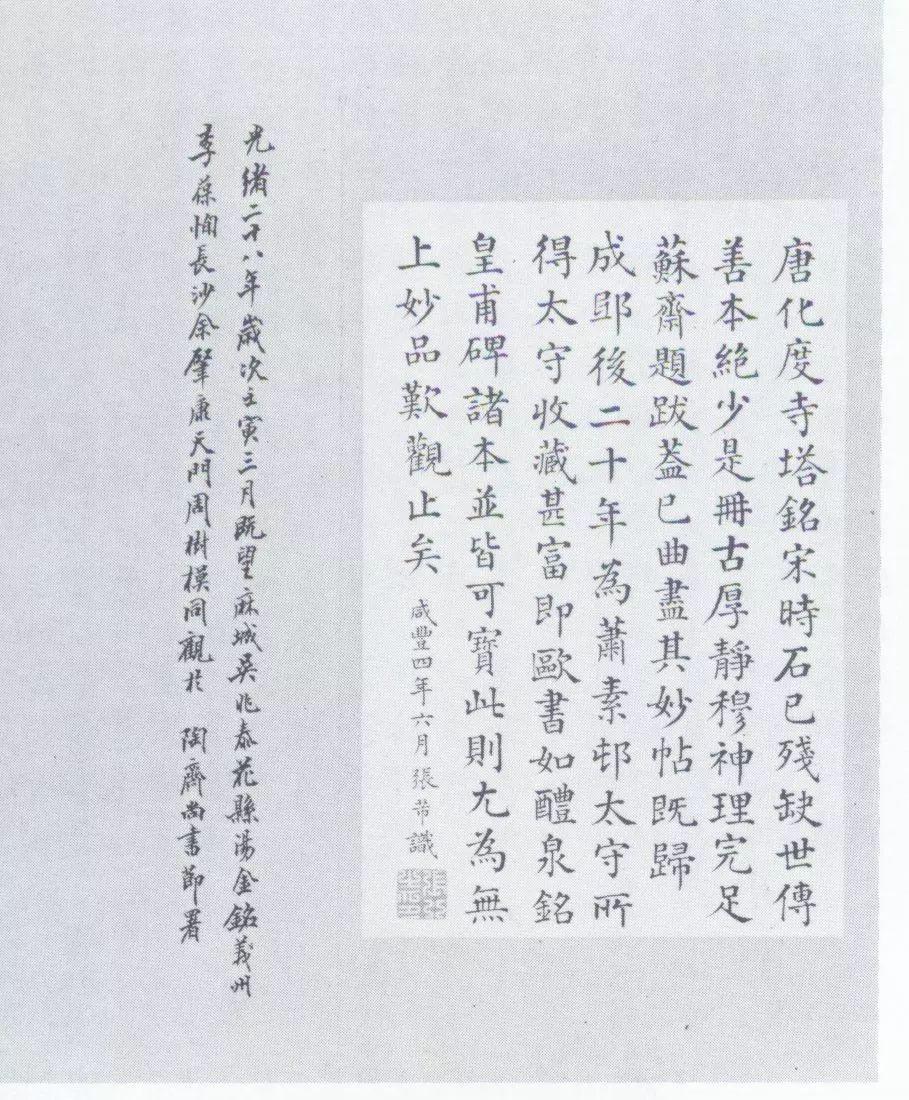 唐化度寺塔銘宋時石已殘缺世傳
善本絶少是冊古厚靜穆神理完足
蘇齋題跋葢已曲盡其妙帖既歸
成邸後二十年為蕭素邨太守所
得太守收藏甚富即歐書如醴泉銘
皇甫碑諸本並皆可寶此則尤為無
上妙品歎觀止矣 咸豐四年六月張芾識
光緒二十八年歲次壬寅三月既望麻城吳兆泰花縣湯金銘義州
李葆恂長沙余肇康天門周樹模同觀於 陶齋尚書節署